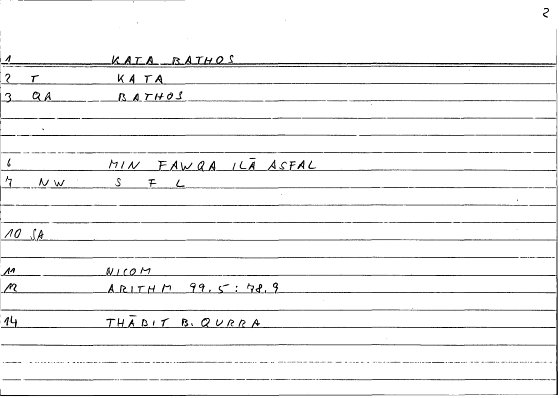 2
1 KATA BATHOS
2 T KATA
3 QA BATHOS
6 MIN FAWQA ILĀ ASFAL
7 NW S F L
10 SA
11 NICOM
12 ARITHM 99.5:78.9
14 THĀBIT B. QURRA